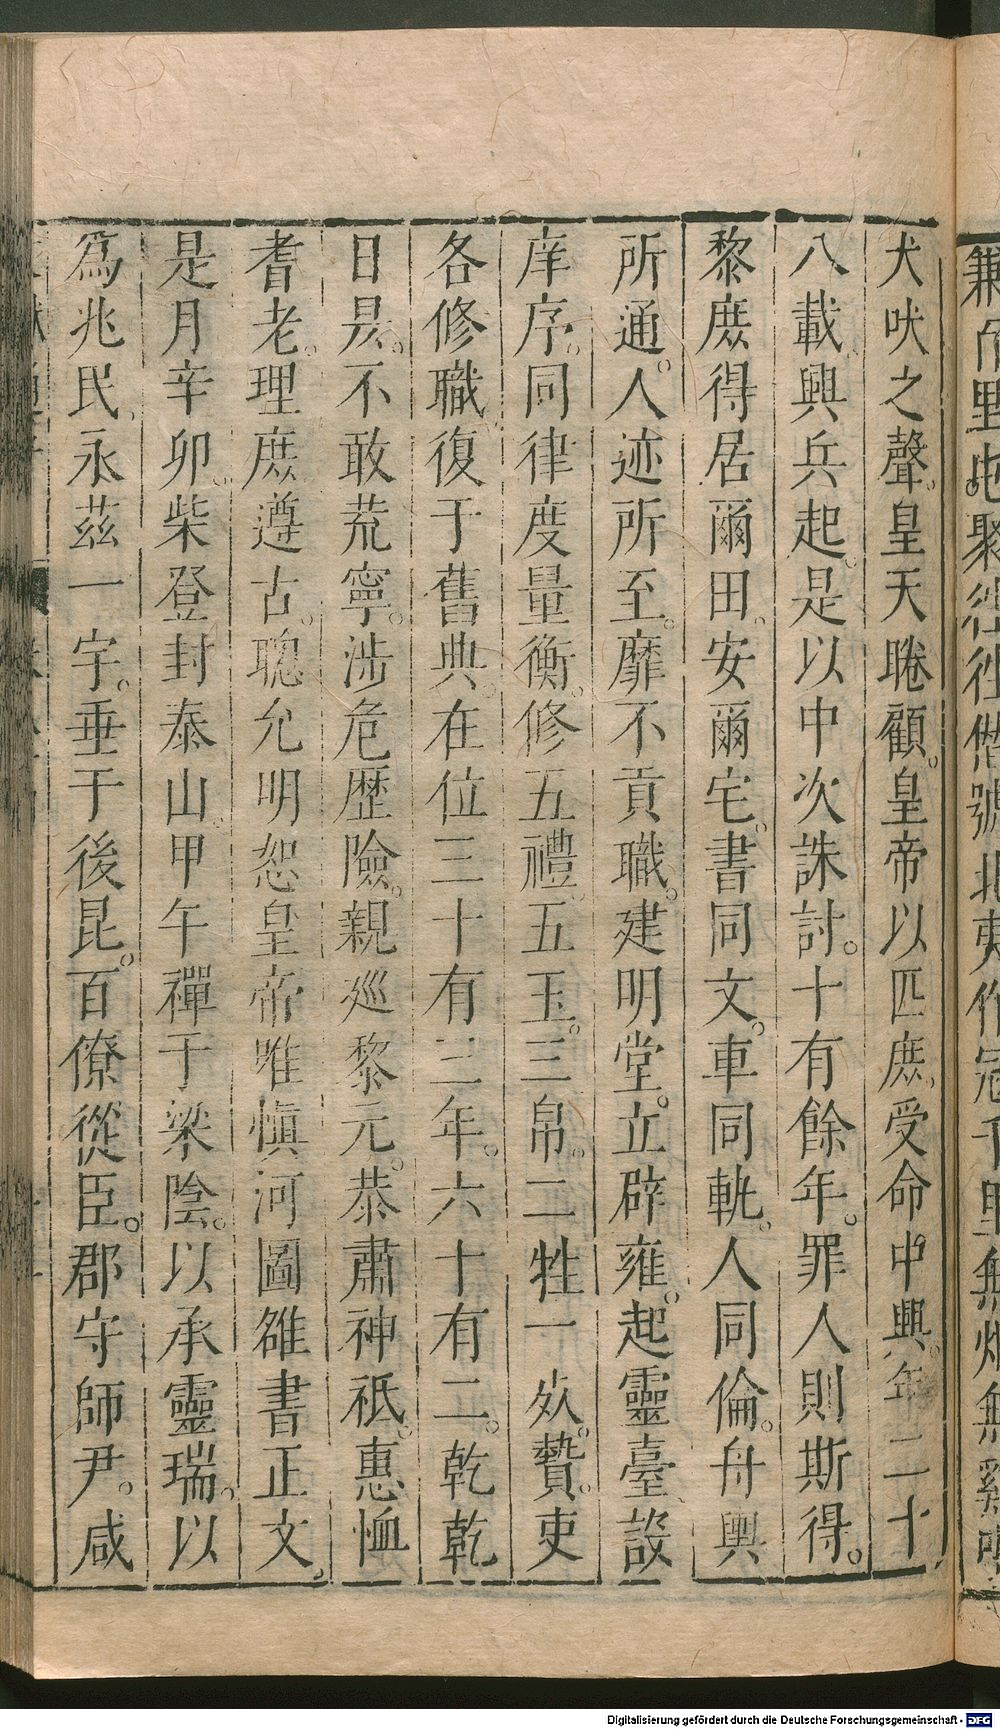 犬吠之聲。皇天睠顧。皇帝以匹庶。受命中興。年二十
八載。興兵起。是以中次誅討。十有餘年。罪人則斯得。
黎庶得居爾田。安爾宅。書同文。車同軌。人同倫。舟輿
所通。人迹所至。靡不貢職。建明堂。立辟雍。起靈臺。設
庠序。同律度量衡。修五禮。五玉。三帛。二牲一𠫤。贄。吏
各修職。復于舊典。在位三十有二年。六十有二。乾乾
日昃。不敢荒寧。涉危歷險。親巡黎元。恭肅神祇。惠恤
耆老。理庶遵古。聰允明恕。皇帝唯慎河圖雒書正文。
是月辛卯。柴登封泰山。甲午禪于梁陰。以承靈瑞。以
爲兆民。永茲一宇。垂于後昆。百僚從臣。郡守師尹。咸
兼
里也聚往往僭號北夷作
千里無烟無雞
Digitalisierung gefördert durch die Deutsche Forschungsgemeinschaft - DFG